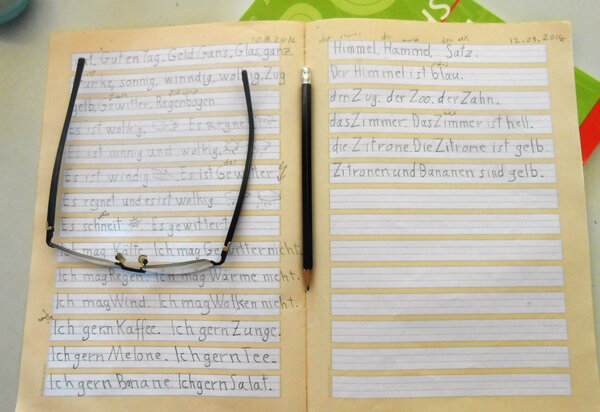 10.8.2014
Gut, Guten Tag. Geld. Gans, Glas, ganz
sonnig, winndig, wolkig, Zug
gelb, Gewitter, Regenbogen.
Es ist wolkig. Es regnet
Es ist sonnig und wolkig.
Es ist windig. Es ist Gewitter
Es regnet und es ist wolkig.
Es schneit. Es gewittert
Ich mag Kälte. Ich mag Gewitter nicht.
Ich mag Regen. Ich mag Wärme nicht.
Ich mag Wind. Ich mag Wolken nicht.
Ich gern Kaffee. Ich gern Zunge.
Ich gern Melone. Ich gern Tee.
Ich gern Banane. Ich gern Salat.
12.08.2014
Himmel. Hammel. Satz.
Der Himmel ist blau.
der Zug. der Zoo. der Zahn.
das Zimmer. Das Zimmer ist hell.
die Zitrone. Die Zitrone ist gelb.
Zitronen und Bananen sind gelb.